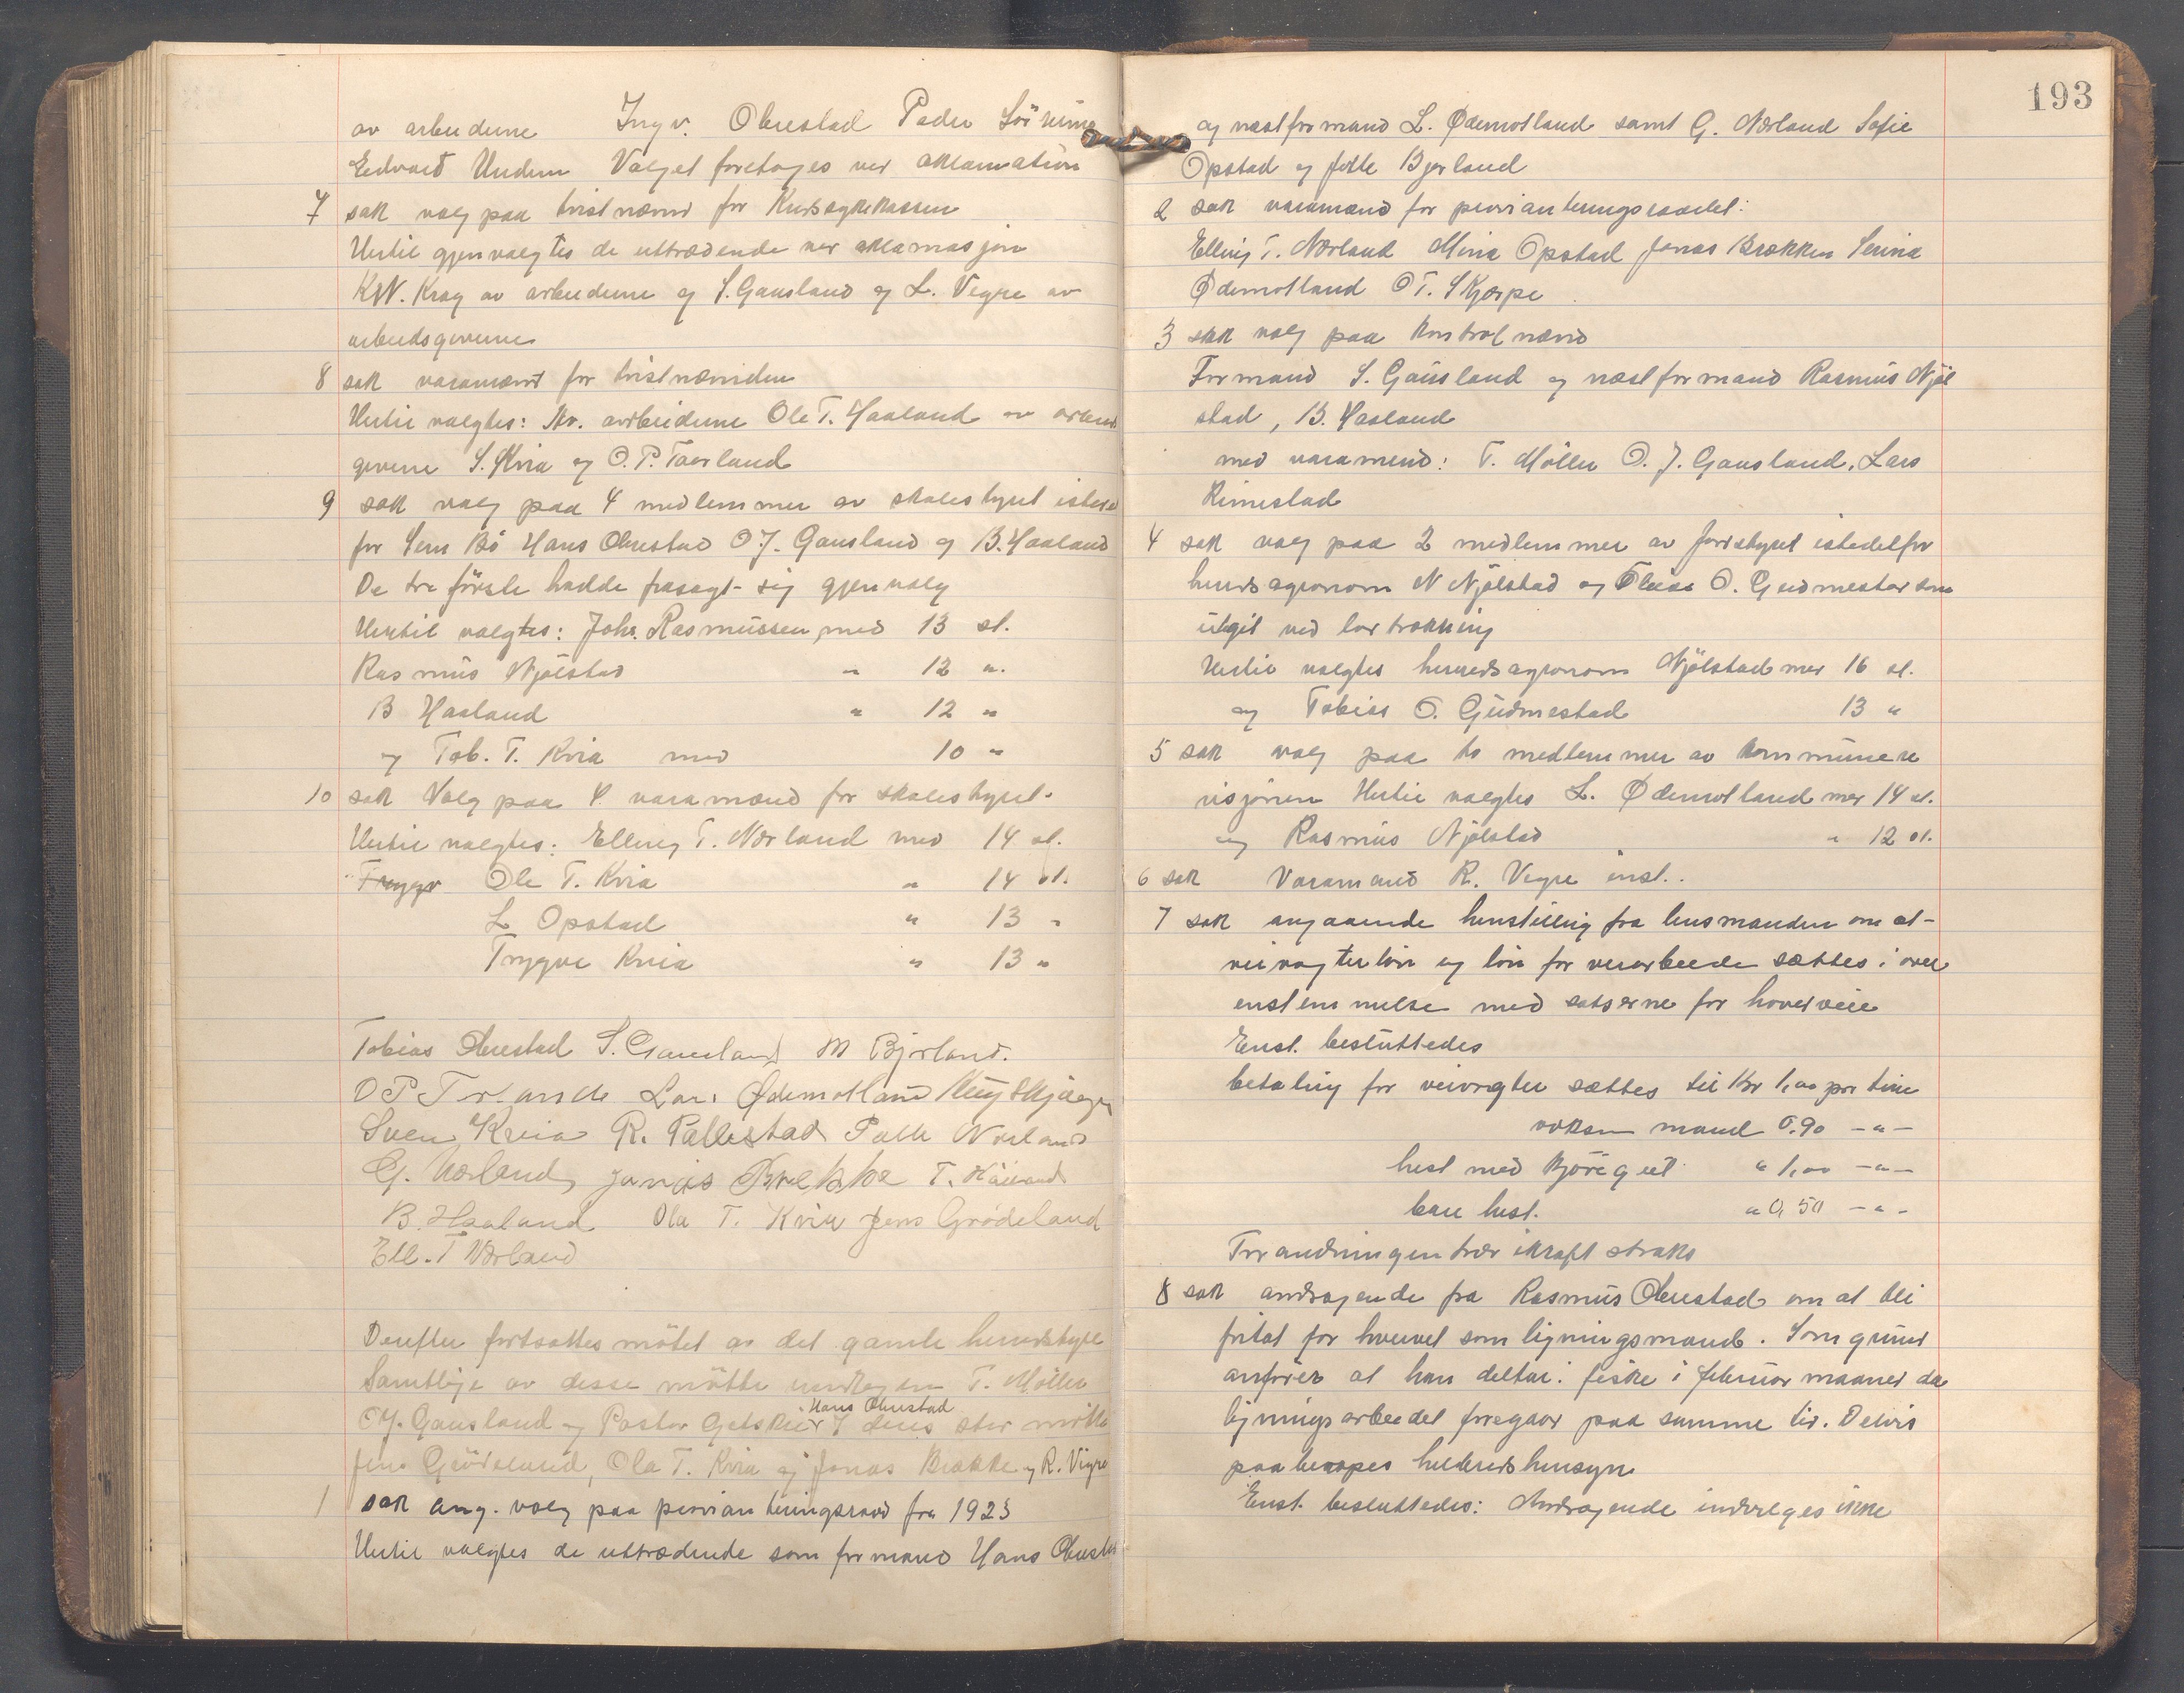 av arbeiderne Ingv. Obrestad Peder Sörheim
Edvard Undem Valget foretages ved aklamation
7 sak valg paa tvistnævnd for Kredssykekassen
Hertil gjenvalgtes de uttrædende ved aklamasjon
K.W. Krag av arbeiderne og S. Gausland og L. Vigre av
arbeidsgiverne
8 sak varamænd for tvistnævnden
Hertil valgtes: Av. arbeiderne Ole T. Haaland av arbeids
giverne S. Kvia og O. P. Taarland
9 sak valg paa 4 medlemmer av skolestyret isteden
for Sem Bö Hans Obrestad O J. Gausland og B. Haaland
De tre förste hadde frasagt sig gjenvalg
Hertil valgtes: Johs. Rasmussen med 13 st.
Rasmus Njölstad " 12 "
B Haaland " 12 "
og Tob. T. Kvia med 10 "
10 sak Valg paa 4 varamænd for skolestyret
Hertil valgtes: Elling T. Nærland med 14 st.
Trygv Ole T. Kvia " 14 st.
L Opstad " 13 "
Trygve Kvia " 13 "
Tobias Obrestad S. Gausland M Bjorland.
O P Torlande Lars Ødemotland
Sven Kvia R. Pallestad Palle Nærland
G. Nærland Jonas Brekke T.
B. Haaland Ola T. Kvia Jens Grödeland
Ell. T Nærland
Derefter fortsattes mötet av det gamle herredstyre
Samtlige av disse mötte undtagen T. Möller
Hans Obrestad
O J. Gausland og Pastor I deres sted mötte
Jens Grödeland, Ola T. Kvia og Jonas Brække og R. Vigre
1 sak ang. valg paa provianteringsraad for 1923
Hertil valgtes de uttrædende som formand Hans Obrestad
193
og næstformand L. Ødemotland samt G. Nærland Sofie
Opstad og Bjorland
2 sak varamænd for provianteringsraadet:
Elling T. Nærland Mina Opstad Jonas Brækken Serina
Ødemotland O T. Skjærpe
3 sak valg paa kontrolnævnd
Formand S. Gausland og næstformand Rasmus Njöl
stad, B. Haaland
med varamænd: T. Möller O. J. Gausland, Lars
Rimestad
4 sak valg paa 2 medlemmer av jordstyret istedetfor
herredsagronom N Njölstad og Tobias O. Gudmestad som
utgit ved lodtrækning
Hertil valgtes herredsagronom Njölstad med 16 st.
og Tobias O. Gudmestad 13 "
5 sak valg paa to medlemmer av kommunere
visjonen Hertil valgtes L. Ødemotland med 14 st.
og Rasmus Njölstad " 12 st.
6 sak Varamand R. Vigre enst..
7 sak angaaende henstilling fra lensmanden om at
veivogterlön og lön for veiarbeide sættes i over
ensstemmelse med satserne for hovedveie
Enst. besluttedes
betaling for veivogter sættes til Kr 1,00 pr time
voksen mand 0,90 - " -
hest med kjöregreie " 1,00 - " -
bare hest. " 0,50 - " -
Forandringen trær ikraft straks
8 sak andragende fra Rasmus Obrestad om at bli
fritat for hvervet som ligningsmand. Som grund
anförer at han deltar i fiske i februar maaned da
ligningsarbeidet foregaar paa samme tid. Delvis
paaberopes helbredshensyn
Enst. besluttedes: Andragende indvilges ikke